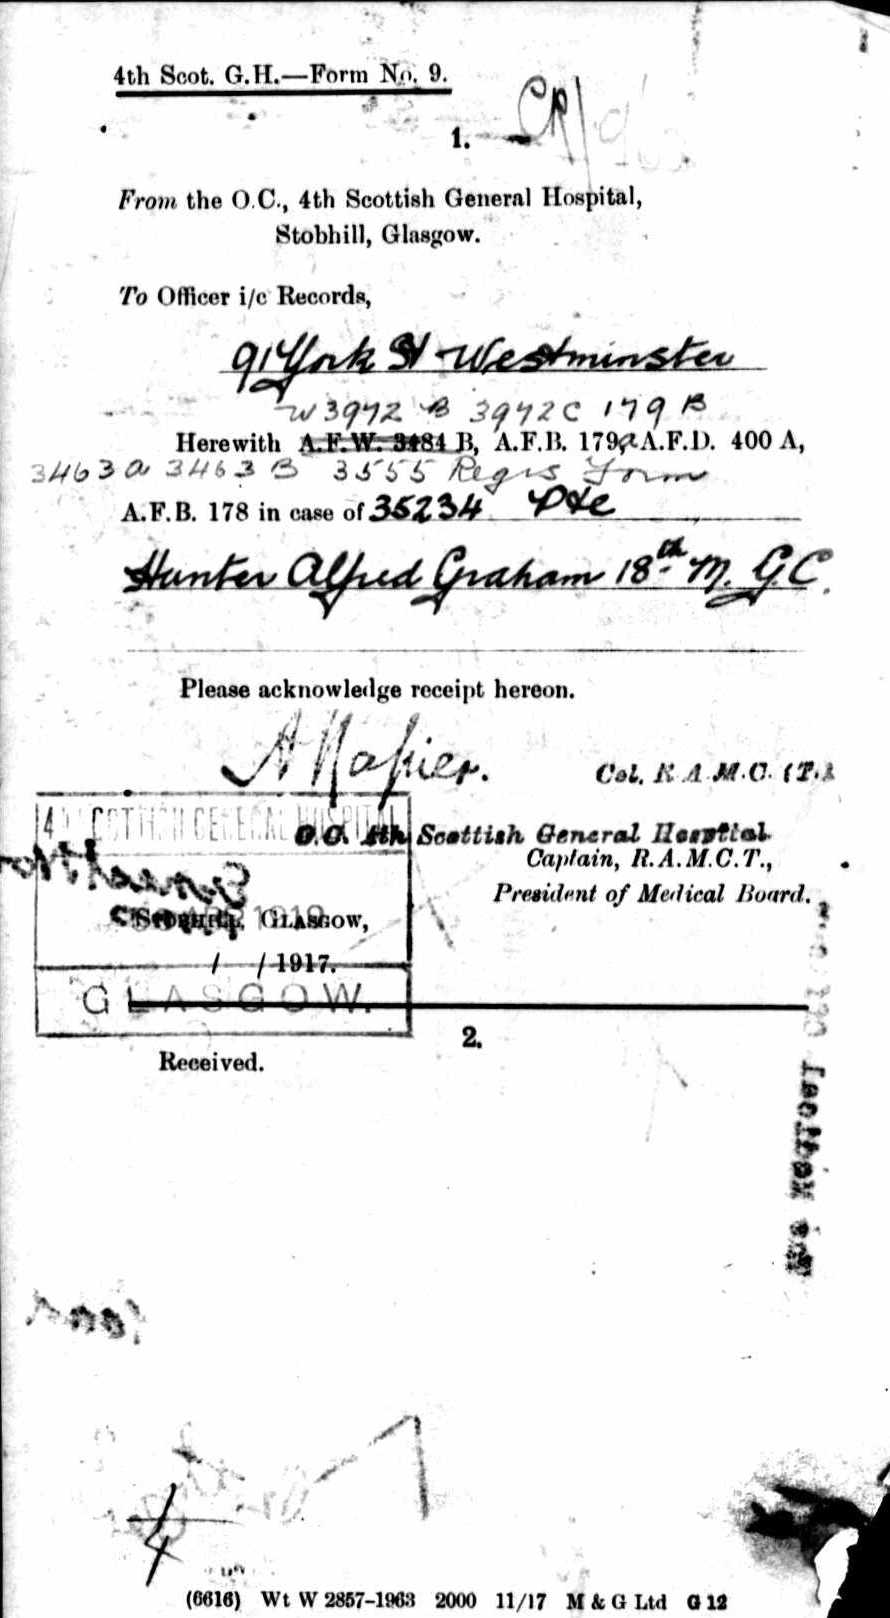 4th Scot. G.H.—Form No. 9.
CR/
1.
From the O.C., 4th Scottish General Hospital,
Stobhill, Glasgow.
To Officer i/c Records,
91 York St Westminster
W3972 B 3972C 179 B
Herewith A.F.W. 3484 B, A.F.B. 179a A.F.D. 400 A,
3463 a 3463 B 3555 Regis Form
A.F.B. 178 in case of 35234 Pte
Hunter Alfred Graham 18th M. G. C.
Please acknowledge receipt hereon.
A Napier.
Col. R.A.M.C. (T.)
O.C. 4th Scottish General Hospital
Captain, R.A.M.C.T.,
President of Medical Board.
SCOTTISH GENERAL HOSPITAL
Stobhill, Glasgow,
/ / 1917.
GLASGOW.
2.
Received.
1/4
(6616) Wt W 2857-1963 2000 11/17 M & G Ltd G 12